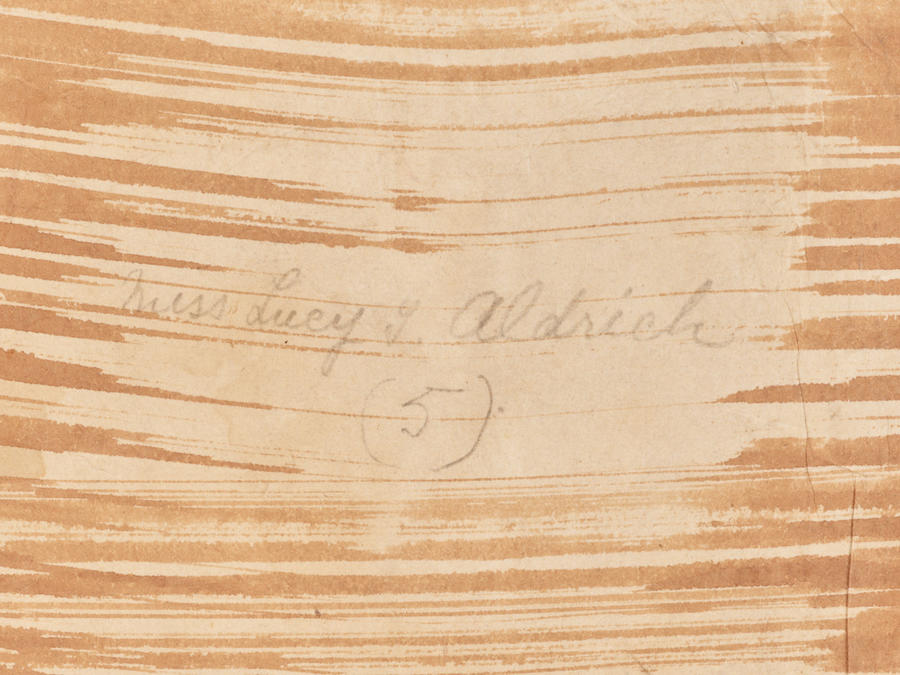 Miss Lucy T. Aldrich
(5)